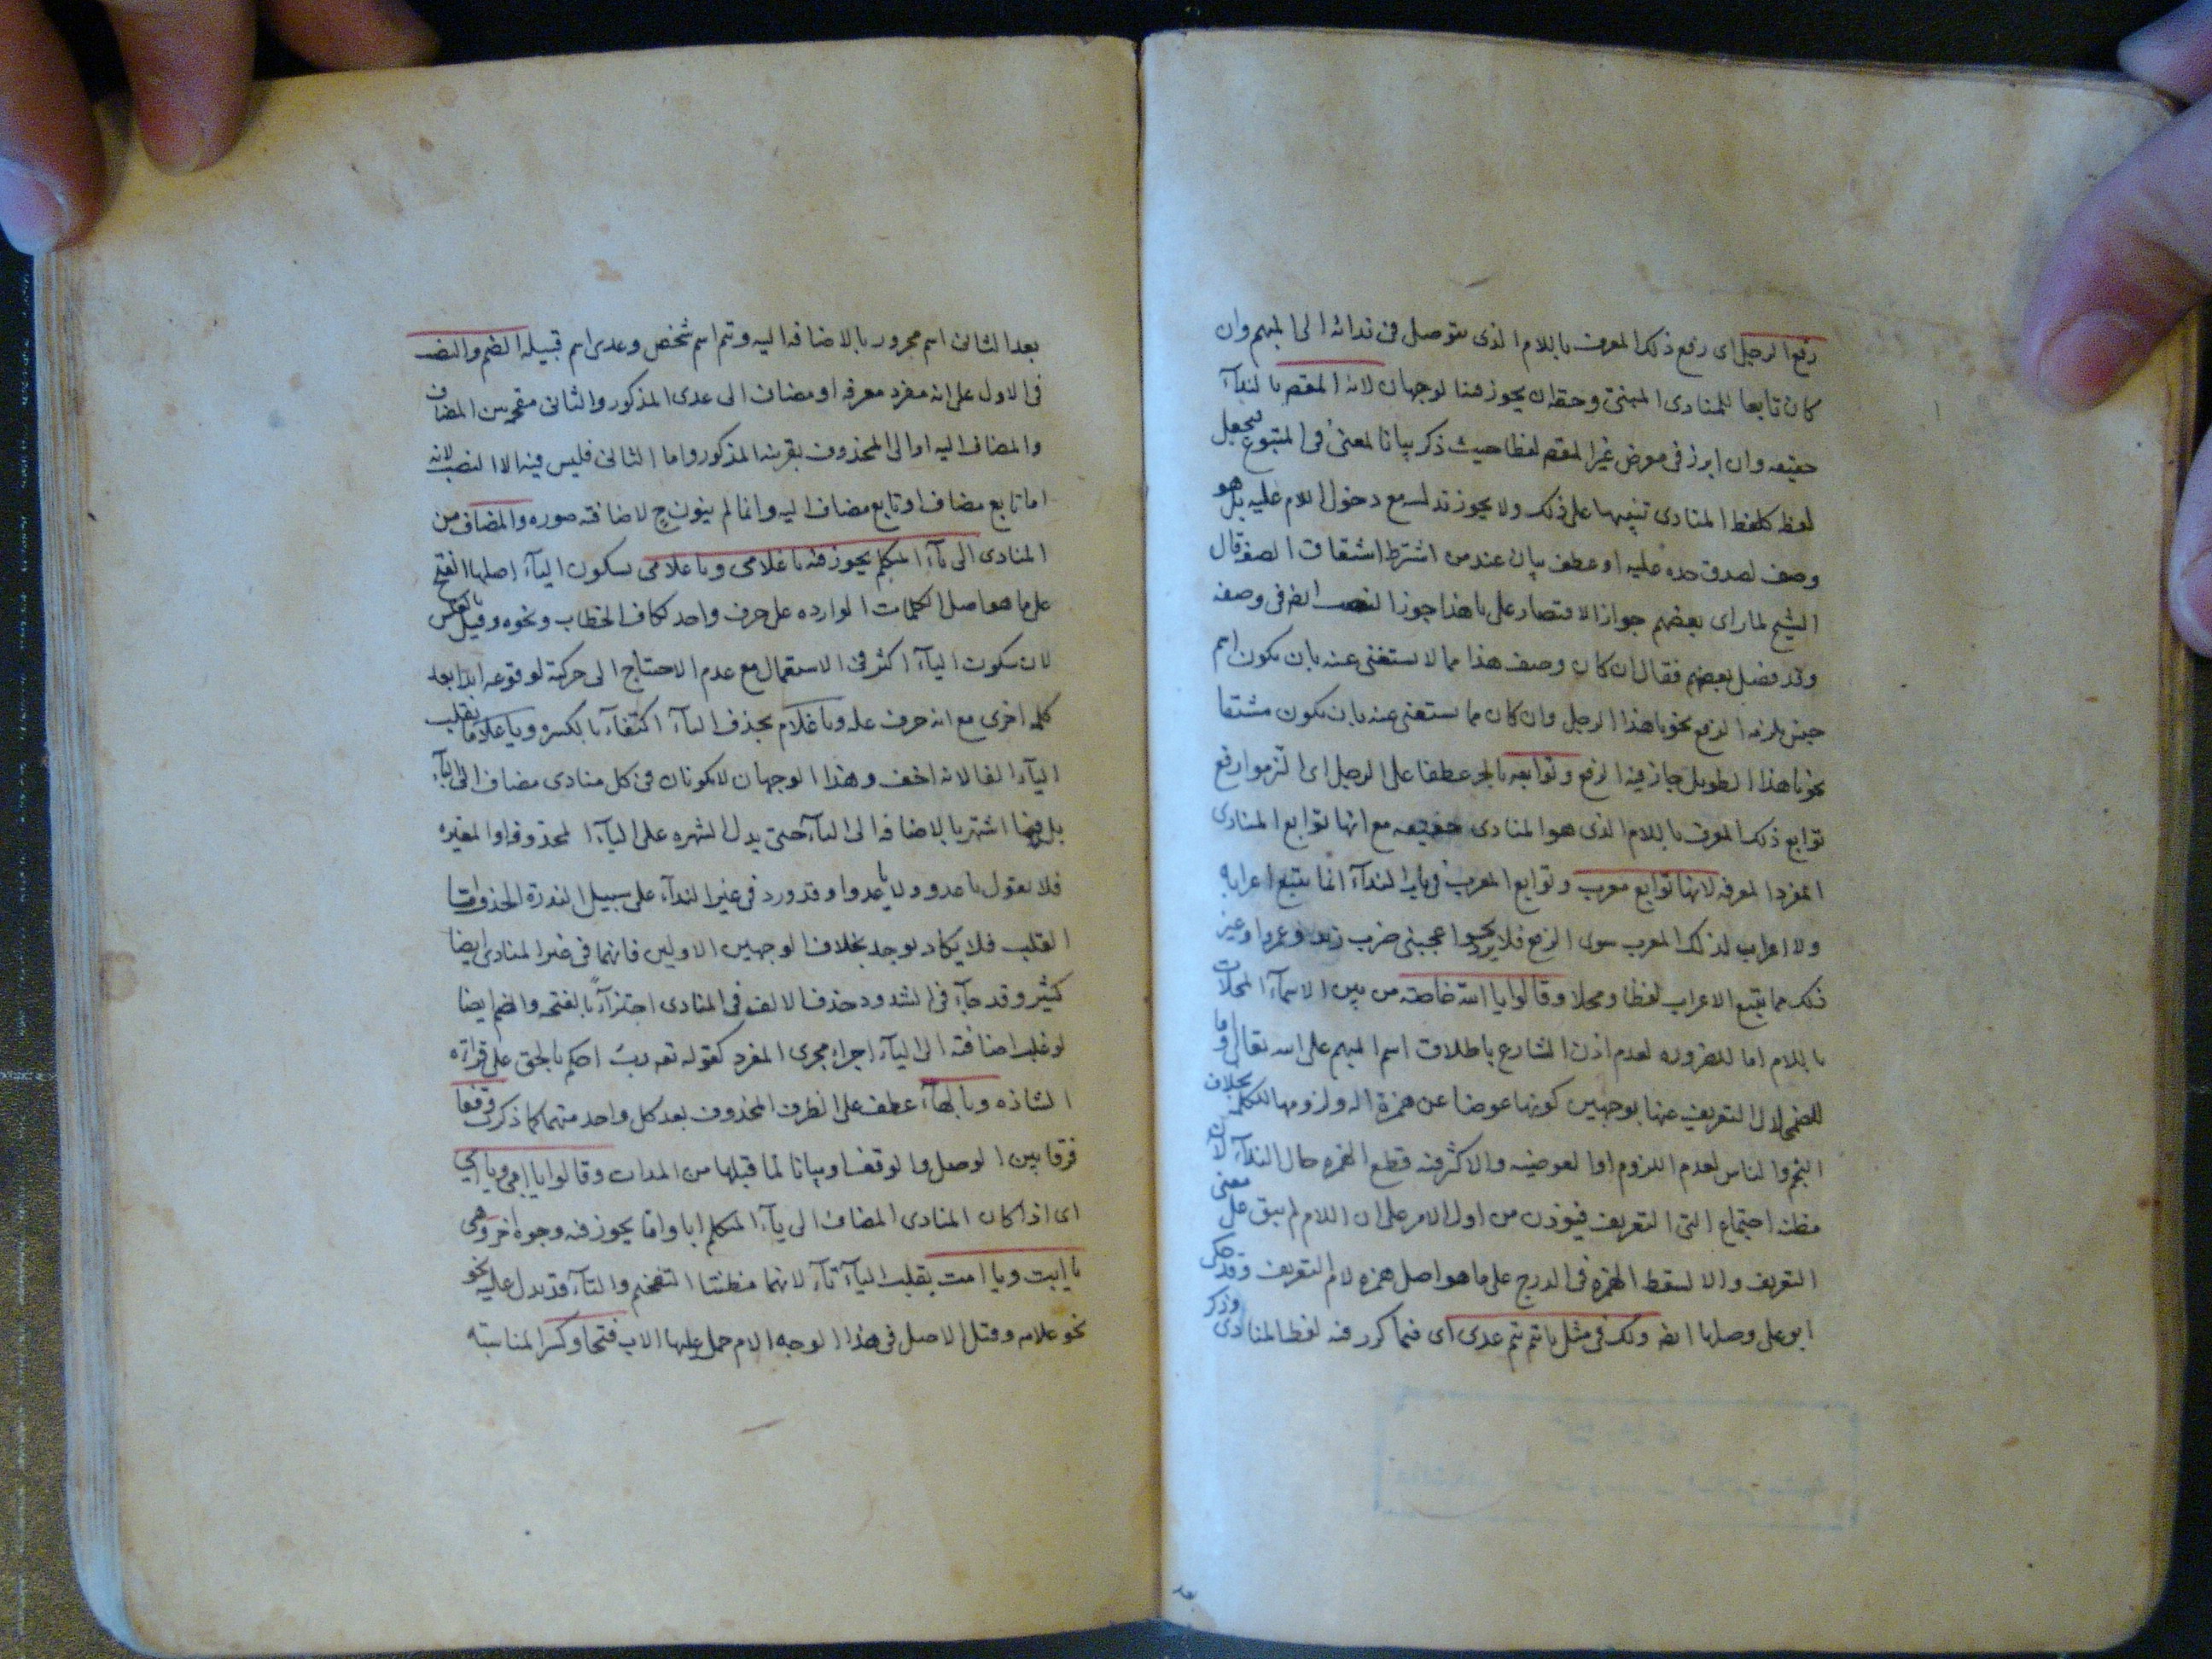 رفع الرجل اى رفع ذلك المعرف باللام الذى يتوصل فى ندائه الى المبهم وان
كان تابعا للمنادى المبنى وحقه ان يجوز هنا لوجهان لانه المقصم بالندآء
حقيقه وان ابرز فى معرض غير المقصم لفظا حيث ذكر بيانا لمعنى فى المتبوع فيجعل
لفظه كلفظ المنادى تنبيها على ذلك ولا يجوز تدلسه مع دخول اللام عليه بل هو
وصف لصدق حده عليه او عطف بيان عند من اشترط اشتقاق الصفة قال
الشيخ لما راى بعضهم جواز الاقتصار على يا هذا جوز النصب ايضه فى وصفه
وقد فصل بعضهم فقال ان كان وصف هذا مما لا يستغنى عنه بان يكون اسم
جنس يلزمه الرفع نحو يا هذا الرجل وان كان مما يستغنى عنه بان يكون مشتقا
نحو يا هذا الطويل جاز فيه الرفع وتوابعه بالجر عطفا على الرجل اى التزموا رفع
توابع ذلك المعرف باللام الذى هو المنادى حقيقه مع انها توابع المنادى
المفرد المعرفه لانها توابع معرب وتوابع المعرب فى باب الندآء انما يتبع اعرابه
ولا اعراب لذلك المعرب سوى الرفع فلا يرد نحو اعجبنى ضرب زيد وعمروا وغير
ذلك مما يتبع الاعراب لفظا ومحلا وقالوا يا الله خاصته من بين الاسمآء المحلات
باللام اما للضروره لعدم اذن الشارع باطلاق اسم المبهم على الله تعالى واما
للضمحلال التعريف عنها بوجهين كونها عوضا عن همزة اله ولزومها للكلمة بخلاف
النجم والناس لعدم اللزوم او العوضيه والاكثر فيه قطع الهمزه حال الندآء لان
مظنه اجتماع التى التعريف فيوذن من اول الامر على ان اللام لم يبق على معنى
التعريف والا لسقط الهمزه فى الدرج على ما هو اصل همزه لام التعريف وقد حكى
ابو على وصلها ايضه ولك فى مثل يا تيم تيم عدى اى فيما كرر فيه لفظ المنادى وذكر
بعد
بعد الثانى اسم مجرور بالاضافه اليه وتيم اسم شخص وعدى اسم قبيله الضم والنصب
فى الاول على انه مفرد معرفه او مضاف الى عدى المذكور والثانى مقحم بين المضاف
والمضاف اليه او الى المحذوف بقرينه المذكور واما الثانى فليس فيه الا النصب لانه
اما تابع مضاف او تابع مضاف اليه وانما لم ينون ح لاضافته صوره والمضاف من
المنادى الى يآء المتكلم يجوز فيه يا غلامى ويا غلامى بسكون اليآء اصلها الفتح
على ما هو اصل الكلمات الوارده على حرف واحد ككاف الخطاب ونحوه وقيل بالعكس
لان سكون اليآء اكثر فى الاستعمال مع عدم الاحتياج الى حركته لوقوعه ابدا بعد
كلمه اخرى مع انه حرف عله ويا غلام بحذف اليآء اكتفآء بالكسره ويا غلاما بقلب
اليآء الفا لانه اخف وهذا الوجهان لا يكونان فى كل منادى مضاف الى اليآء
بل فيما اشتهر بالاضافه الى اليآء حتى يدل الشهره على اليآء المحذوفه او المغيره
فلا يقول يا عدو ولا يا عدوا وقد ورد فى غير الندآء على سبيل الندرة الحذف واما
القلب فلا يكاد يوجد بخلاف الوجهين الاولين فانهما فى غير المنادى ايضا
كثير وقد جآء فى الشذوذ حذف الالف فى المنادى اجتزآء بالفتحه والضم ايضا
لو غلب اضافته الى اليآء اجراء مجرى المفرد كقوله تعه رب احكم بالحق على قراءه
الشاذه وبالهآء عطف على الظرف المحذوف بعد كل واحد منهما كما ذكر وقفا
فرقا بين الوصل والوقف وبيانا لما قبلها من المدات وقالوا يا امى ويا ابى
اى اذا كان المنادى المضاف الى يآء المتكلم ابا واما يجوز فيه وجوه اخر وهى
يا ابت ويا امت بقلب اليآء تآء لانهما مظنتا التفخيم والتآء قد يدل عليه نحو
نحو علامه وقيل الاصل فى هذا الوجه الام حمل عليها الاب فتحا وكسرا لمناسبته